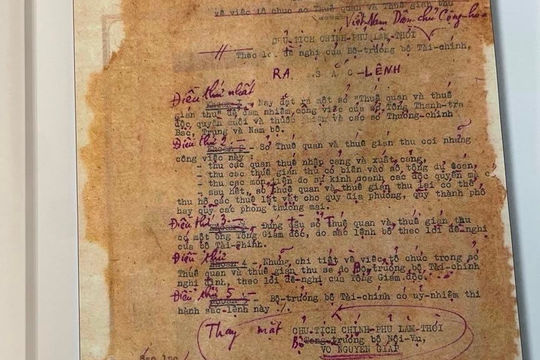 về việc tổ chức sở Thuế quan và thuế gián thu
Việt Nam Dân chủ Cộng hòa
CHỦ TỊCH CHÍNH-PHỦ LÂM-THỜI
Theo lời đề nghị của Bộ-trưởng bộ Tài-chính,
RA SẮC-LỆNH
Điều thứ nhất
Nay đặt ra một sở "Thuế quan và thuế
gián thu" để đảm nhiệm công việc của sở Tổng Thanh-tra
độc quyền muối và thuốc phiện và các sở Thương-chính
Bắc, Trung và Nam bộ.
Điều thứ 2 - Sở Thuế quan và thuế gián thu coi những
công việc này :
- thu các quan thuế nhập cảng và xuất cảng,
- thu các thuế gián thu có biên vào sổ tổng dự toán,
- thu các món tiền do sự kinh doanh các độc quyền mà có
sau hết, sở Thuế quan và thuế gián thu lại có thể
thu hộ các thuế lặt vặt cho quỹ địa phương, quỹ thành phố
hay quỹ các phòng thương mại.
Điều thứ 3 - Đứng đầu sở Thuế quan và thuế gián thu
có một ông Tổng Giám đốc, do sắc lệnh bổ theo lời đề-nghị
của bộ Tài-chính.
Điều thứ 4 - Những chi tiết về việc tổ chức trong sở
Thuế quan và thuế gián thu sẽ do Bộ-trưởng bộ Tài-chính
nghị định, theo lời đề-nghị của ông Tổng Giám đốc.
Điều thứ 5 - Bộ-trưởng bộ Tài-chính có uỷ-nhiệm thi
hành sắc-lệnh này ./.
Thay mặt CHỦ TỊCH CHÍNH-PHỦ LÂM-THỜI
Bộ-trưởng bộ Nội-Vụ,
VÕ NGUYÊN GIÁP
Sao lục